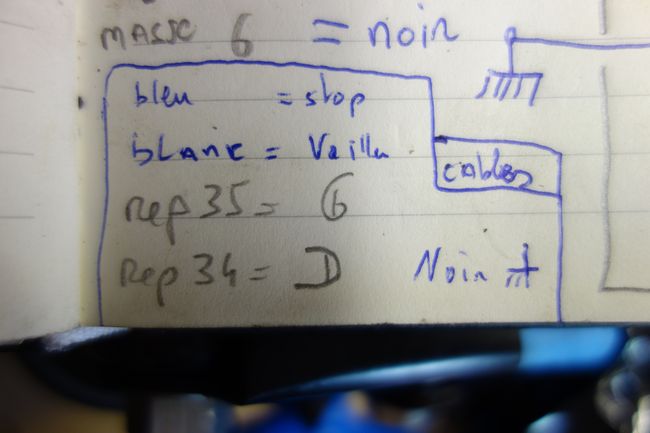 masse 6 = noir
bleu = stop
blanc = Veille
cables
rep 35 = G
rep 34 = D
Noir